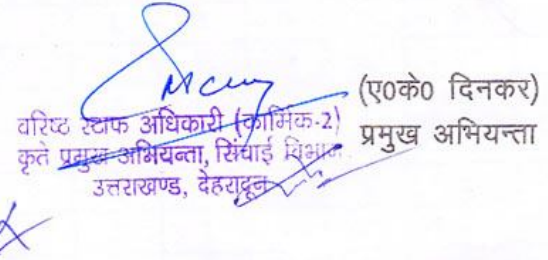 (ए0के0 दिनकर)
प्रमुख अभियन्ता
वरिष्ठ स्टाफ अधिकारी (कार्मिक-2)
कृते प्रमुख अभियन्ता, सिंचाई विभाग
उत्तराखण्ड, देहरादून